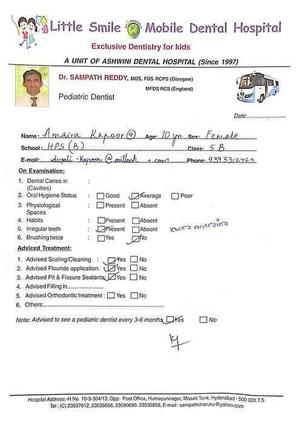 Little Smile Mobile Dental Hospital
Exclusive Dentistry for kids
A UNIT OF ASHWINI DENTAL HOSPITAL (Since 1997)
Dr. SAMPATH REDDY, MDS, FDS RCPS (Glasgow)
MFDS RCS (England)
Pediatric Dentist
Date:
Name: Amaira Kapoor Age: 10 yrs Sex: Female
School: HPS (B) Class: 5 B
E-mail: Kapoor@outlook.com Phone:
On Examination:
1. Dental Caries in :
(Cavities)
2. Oral Hygiene Status : Good Average Poor
3. Physiological : Present Absent
Spaces
4. Habits : Present Absent
5. Irregular teeth : Present Absent
6. Brushing twice : Yes No
Adviced Treatment:
1. Advised Scaling/Cleaning : Yes No
2. Advised Flouride application: Yes No
3. Advised Pit & Fissure Sealants: Yes No
4. Advised Filling in
5. Advised Orthodontic treatment : Yes No
6. Others:
Note: Advised to see a pediatric dentist every 3-6 months Yes No
Hospital Address: H.No. 10-3-304/13, Opp. Post Office, Humayunnagar, Masab Tank, Hyderabad - 500 028 T.S.
Tel.: (C) 23537612, 23535656, 23590690, 23535858, E-mail: sampathcheruku@yahoo.com